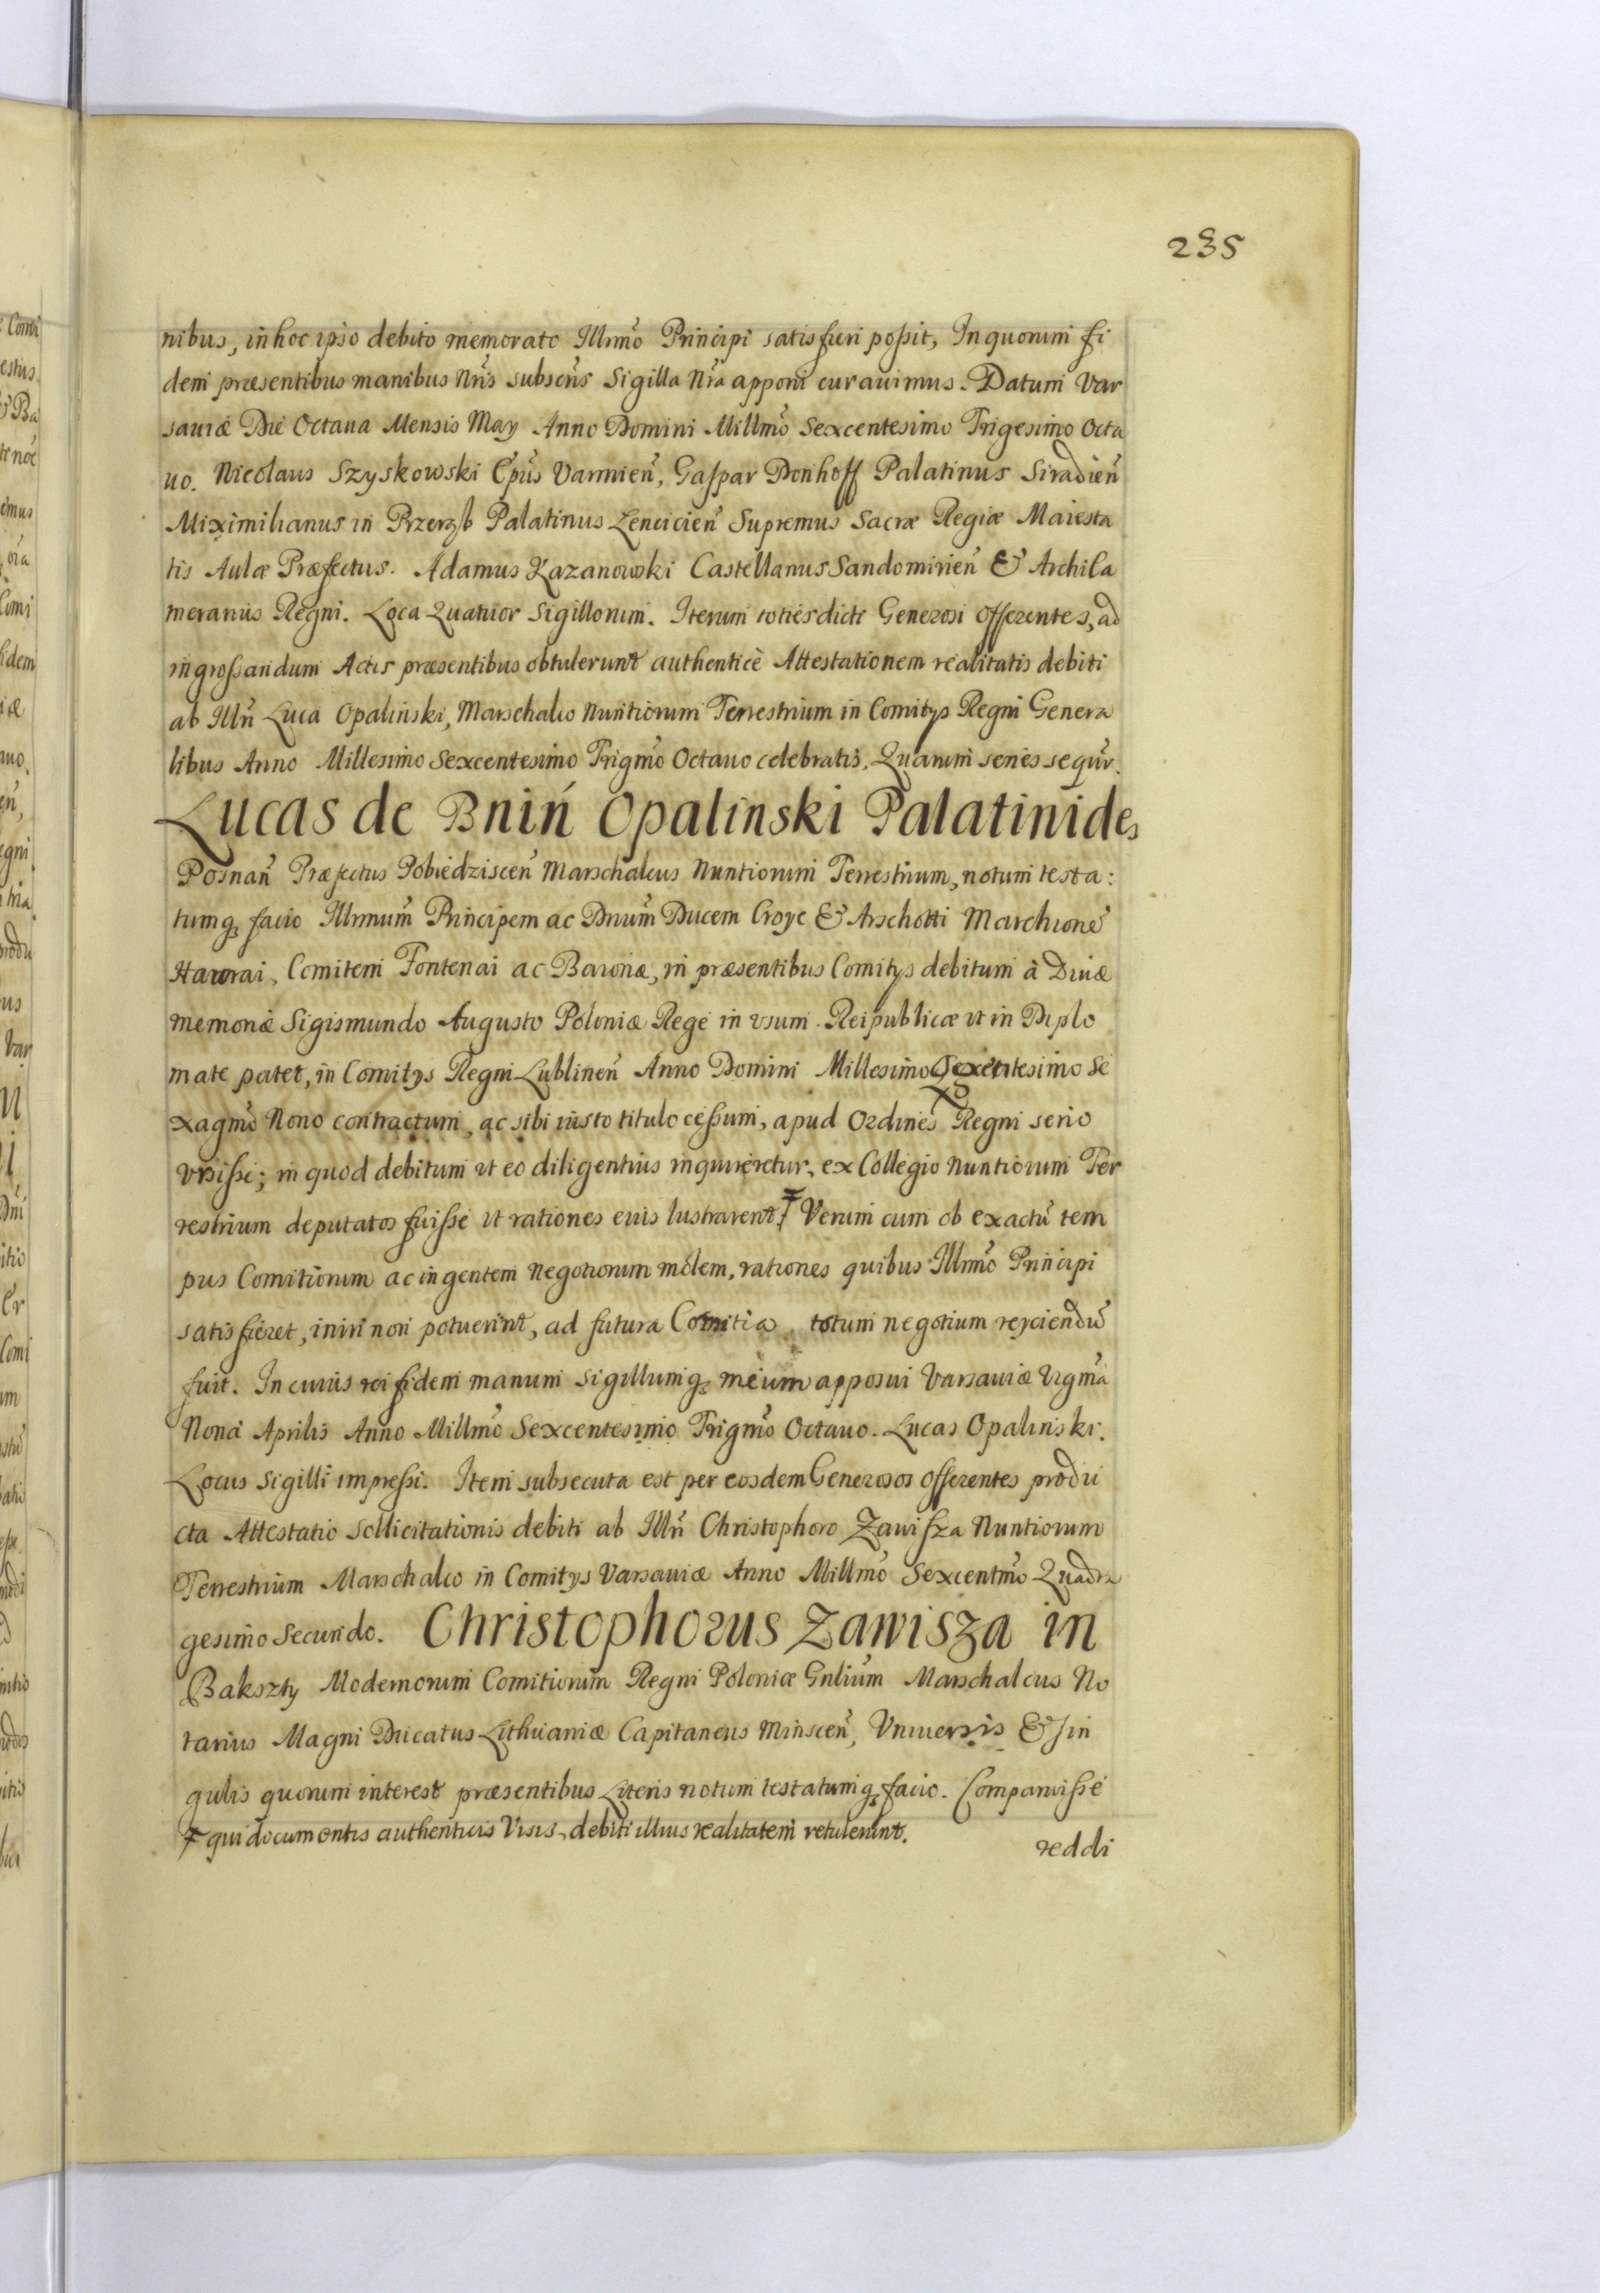 235
nibus, in hoc ipso debito memorato Illrmo Principi satisfieri poßit, In quorum fi
dem præsentibus manibus Nris subscris Sigilla Nra apponi curauimus. Datum Var
sauiæ Die Octaua Mensis May Anno Domini Millmo Sexcentesimo Trigesimo Octa
uo. Nicolaus Szyskowski Epus Varmien, Gaspar Donhoff Palatinus Siradien
Miximilianus in Przerąb Palatinus Lencicien Supremus Sacræ Regiæ Maiesta
tis Aulæ Præfectus. Adamus Kazanowski Castellanus Sandomirien & Archica
merarius Regni. Loca Quatuor Sigillorum. Iterum toties dicti Generosi Offerentes, ad
ingroßandum Actis præsentibus obtulerunt authenticè Attestationem realitatis debiti
ab Illri Luca Opalinski, Marschalco Nuntiorum Terrestrium in Comitys Regni Genera
libus Anno Millesimo Sexcentesimo Trigmo Octauo celebratis. Quarum series sequr.
Lucas de Bniń Opalinski Palatinides
Posnan Præfectus Pobiedziscen Marschalcus Nuntiorum Terrestrium, notum testa:
tumq facio Illrmum Principem ac Dnum Ducem Croye & Arschotti Marchione
Hawrai, Comitem Fontenai ac Baronæ, in præsentibus Comitys debitum à Diuæ
memoriæ Sigismundo Augusto Poloniæ Rege in vsum Reipublicæ vt in Diplo
mate patet, in Comitys Regni Lublinen Anno Domini Millesimo Qgentesimo Se
xagmo Nono contractum, ac sibi iusto titulo ceßum, apud Ordines Regni serio
vrsiße; in quod debitum vt eo diligentius inquireretur, ex Collegio Nuntiorum Ter
restrium deputatos fuiße vt rationes euis lustrarent. Ŧ Verum cum ob exactu tem
pus Comitiorum ac ingentem negotiorum molem, rationes quibus Illrmo Principi
satisfieret, iniri non potuerint, ad futura Comitia totum negotium reyciendu
fuit. In cuius rei fidem manum sigillumq meum apposui Varsauiæ Vigma
Nona Aprilis Anno Millmo Sexcentesimo Trigmo Octauo. Lucas Opalinski.
Locus Sigilli impreßi. Item subsecuta est per eosdem Generosos Offerentes produ
cta Attestatio sollicitationis debiti ab Illri Christophoro Zawisza Nuntiorum
Terrestrium Marschalco in Comitys Varsauiæ Anno Millmo Sexcentmo Quadra
gesimo Secundo. Christophorus Zawisza in
Bakszty Modernorum Comitiorum Regni Poloniæ Gnlium Marschalcus No
tarius Magni Ducatus Lithuaniæ Capitaneus Minscen, Vniuersis & sin
gulis quorum interest præsentibus Literis notum testatumq facio. Comparuiße
Ŧ qui documentis authenticis Visis, debiti illius realitatem retulerint.
reddi